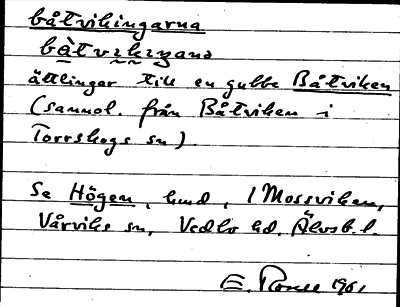 båtvikingarna
bàtvɪkɪŋana
ättlingar till en gubbe Båtviken
(sannol. från Båtviken i
Torrskogs sn).
Se Högen, hmd, i Mossviken,
Vårviks sn, Vedbo hd, Älvsb. l.
E. 1961